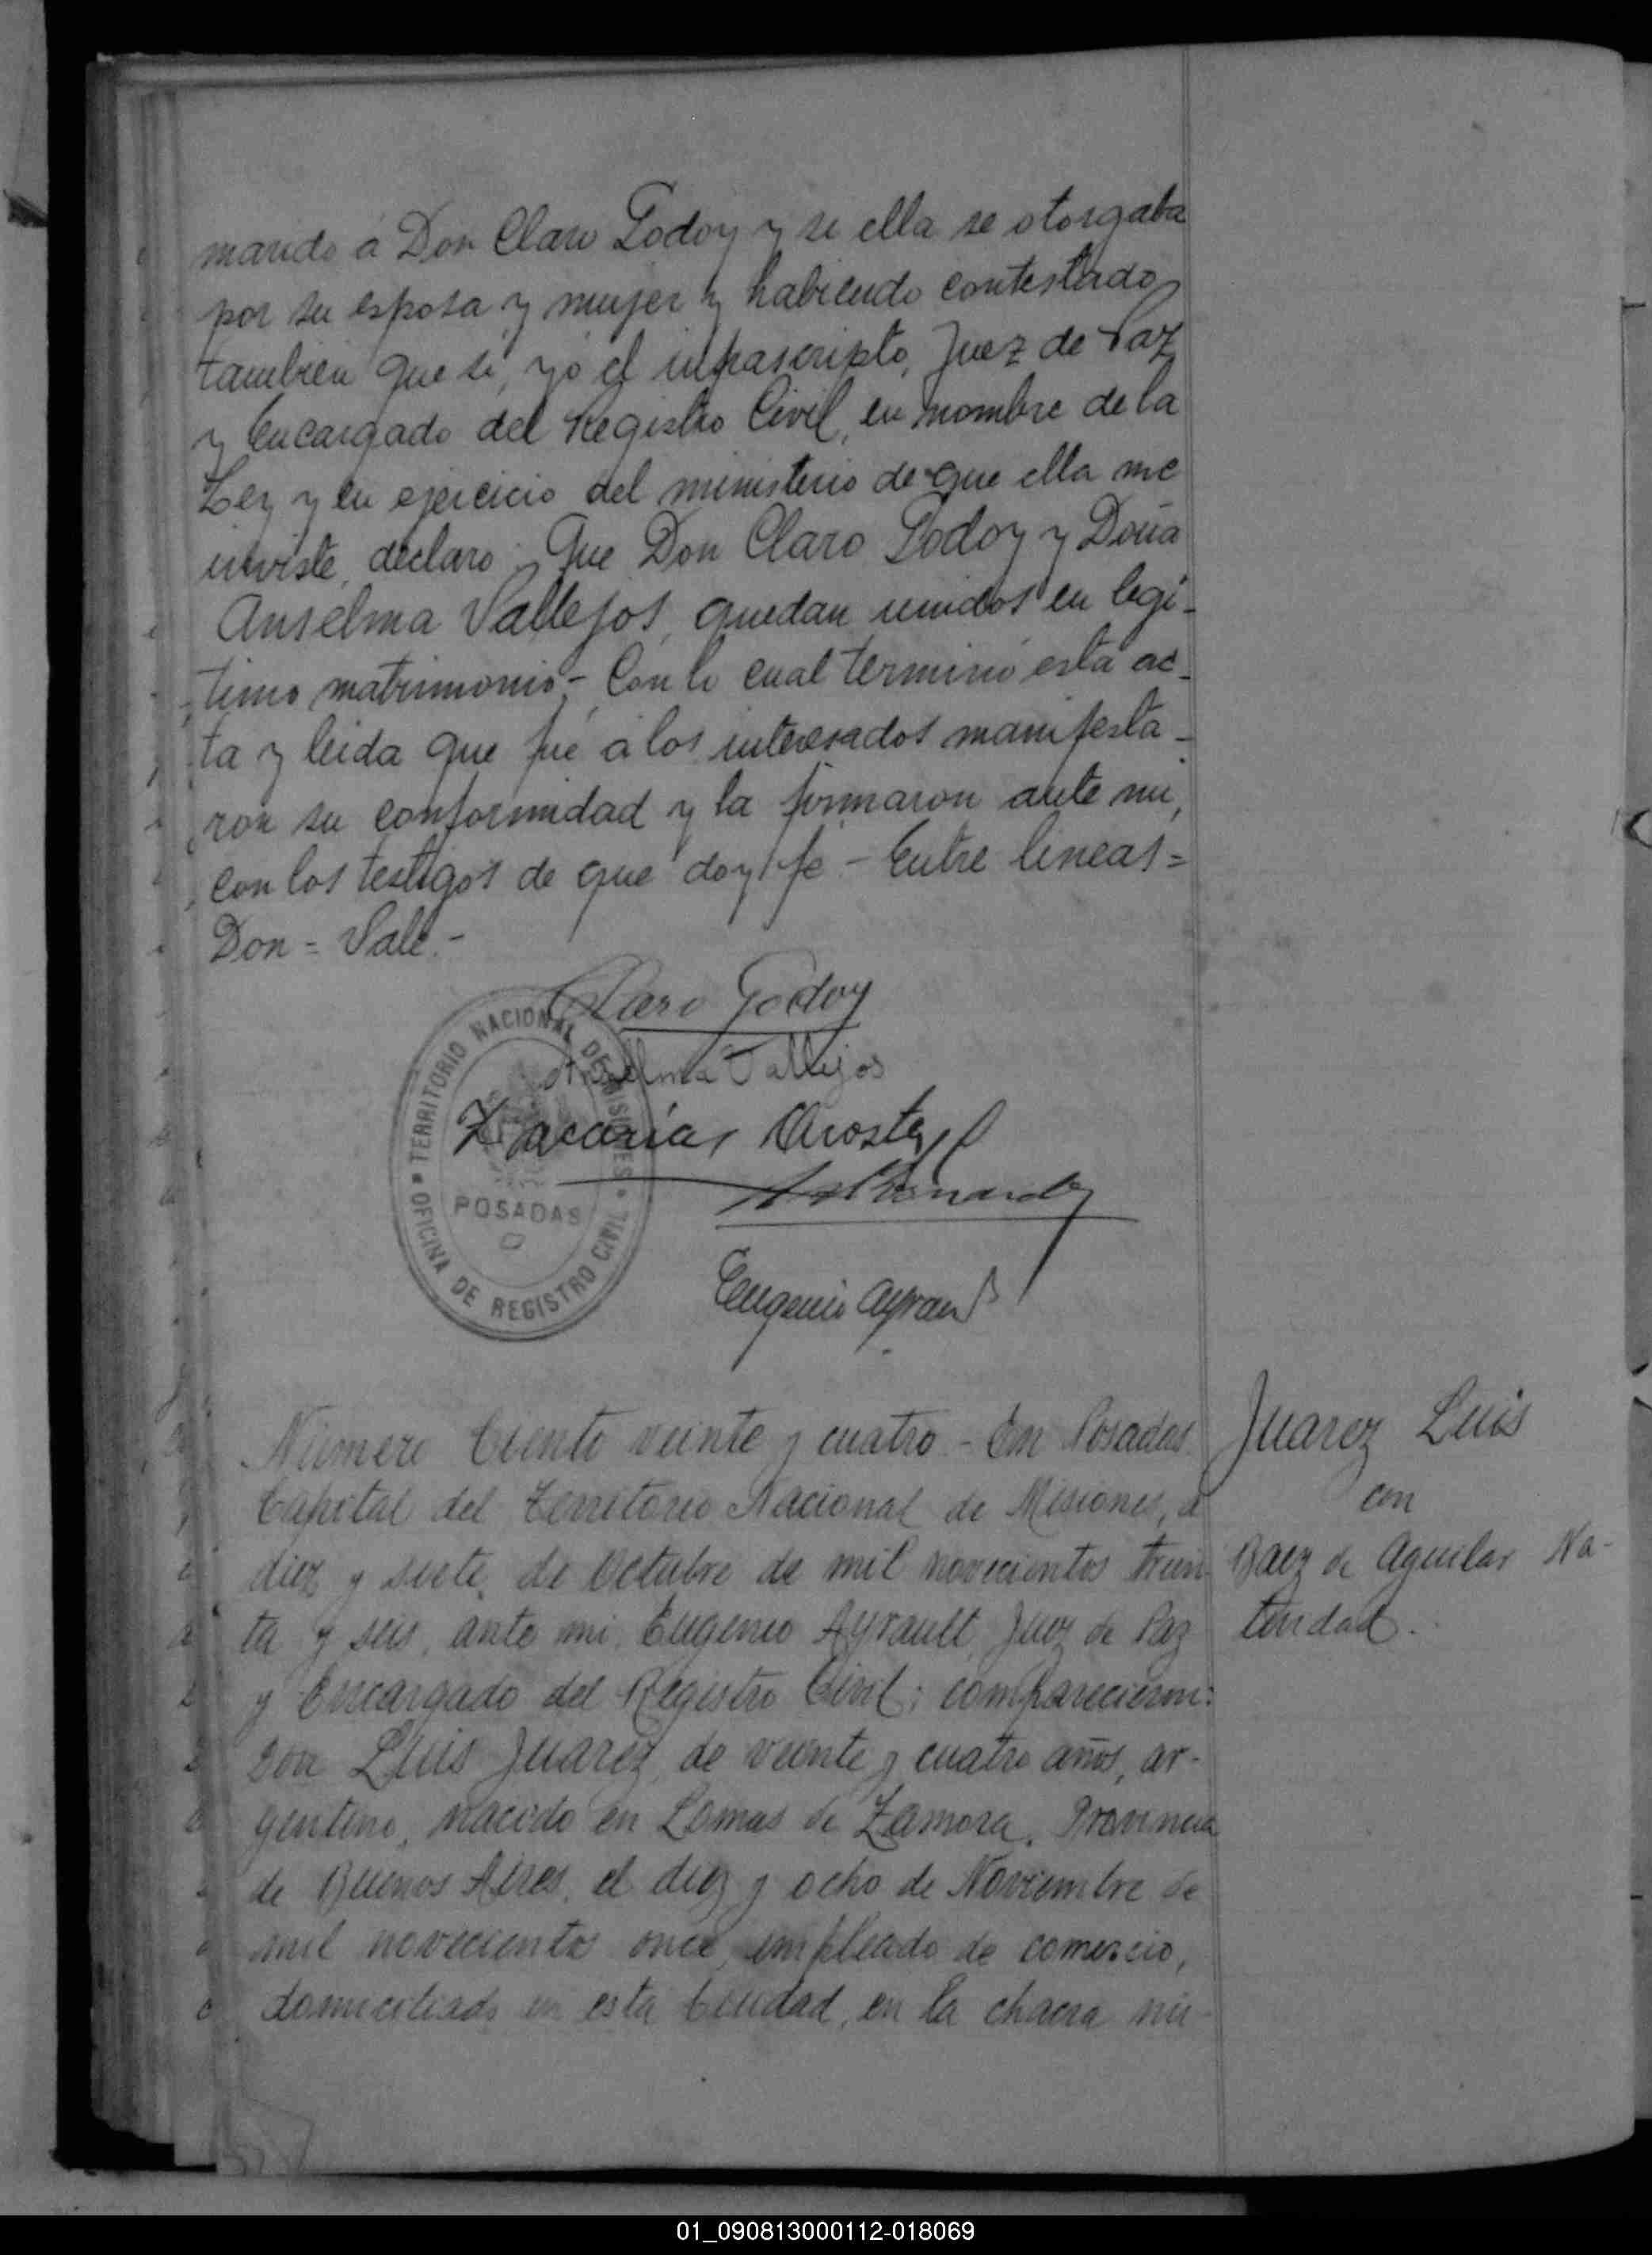 marido á Don Claro Godoy y si ella se otorgaba
por su esposa y mujer y habiendo contestado
tambien que si, yó el infrascripto, Juez de Paz
y Encargado del Registro Civil, en nombre de la
Ley y en ejercicio del ministerio de que ella me
inviste, declaro: Que Don Claro Godoy y Doña
Anselma Vallejos, quedan unidos en legi-
timo matrimonio - Con lo cual terminó esta ac-
ta y leida que fué á los interesados manifesta-
ron su conformidad y la firmaron ante mi,
con los testigos de que doy fé - Entre lineas =
Don = Vale. -
Claro Godoy
Anselma Vallejos
Zacarías
Eugenio Ayrault
TERRITORIO NACIONAL DE MISIONES
POSADAS
OFICINA DE REGISTRO CIVIL
Número Ciento veinte y cuatro - En Posadas
Capital del Territorio Nacional de Misiones, a
diez y siete de Octubre de mil novecientos trein-
ta y seis, ante mi, Eugenio Ayrault, Juez de Paz
y Encargado del Registro Civil; comparecieron:
Don Luis Juarez, de veinte y cuatro años, ar-
gentino, nacido en Lomas de Zamora, Provincia
de Buenos Aires, el diez y ocho de Noviembre de
mil novecientos once, empleado de comercio,
domiciliado en esta Ciudad, en la chacra nú-
Juarez Luis
con
Baez de Aguilar Na-
tividad.
01_090813000112-018069